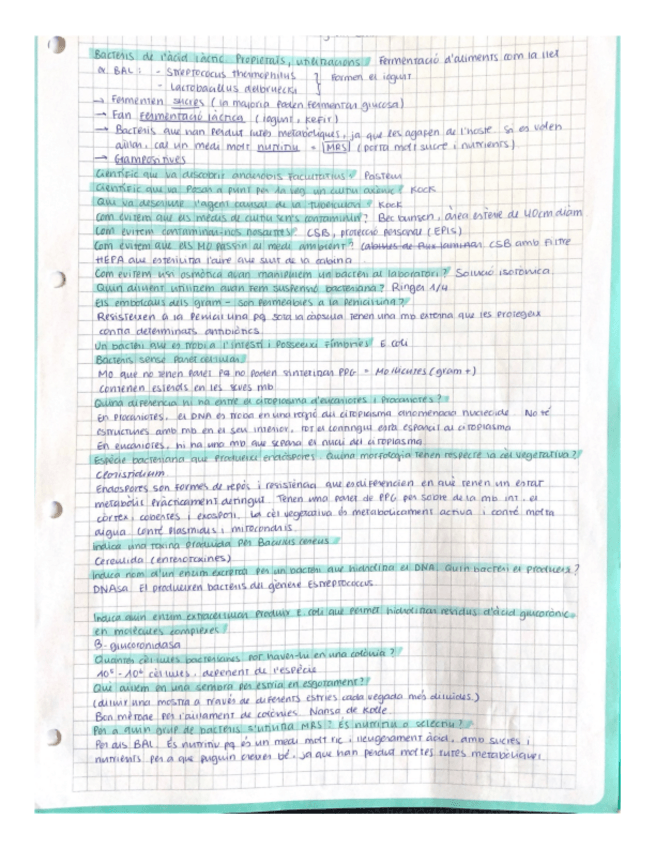 Bacteris de l'àcid làctic. Propietats, utilitzacions? Fermentació d'aliments com la llet
α BAL: - Streptococus thermophilus } Formen el iogurt
- Lactobacillus delbrueckii
→ Fermenten sucres (la majoria poden fermentar glucosa)
→ Fan fermentació làctica (iogurt, kefir)
→ Bacteris que han perdut rutes metabòliques, ja que les agafen de l'hoste. Si es volen
aïllar, cal un medi molt nutritiu = MRS (porta molt sucre i nutrients)
→ Grampositives
Científic que va descobrir anaerobis facultatius? Pasteur
Científic que va posar a punt per 1a veg. un cultiu axènic? Kock
Qui va descobrir l'agent causal de la tuberculosi? Kock
Com evitem que els medis de cultiu se'ns contaminin? Bec bunsen, àrea estèril de 40cm diàm
Com evitem contaminar-nos nosaltres? CSB, protecció personal (EPIS)
Com evitem que els MO passin al medi ambient? Cabines de flux laminar CSB amb filtre
HEPA que esterilitza l'aire que surt de la cabina
Com evitem xsi osmòtica quan manipulem un bacteri al laboratori? Solució isotònica
Quin diluent utilitzem quan fem suspensió bacteriana? Ringer 1/4
Els embolcalls dels gram - són permeables a la penicil·lina?
Resisteixen a la penicil·lina pq sota la càpsula tenen una mb externa que les protegeix
contra determinats antibiòtics
Un bacteri que es troba a l'intestí i posseeixi fímbries? E. coli
Bacteris sense paret cel·lular
MO que no tenen paret pq no poden sintetitzar PPG = Mollicutes (gram +)
Contenen esterols en les seves mb
Quina diferència hi ha entre el citoplasma d'eucariotes i procariotes?
En procariotes, el DNA es troba en una regió del citoplasma anomenada nucleoide. No té
estructures amb mb en el seu interior, tot el contingut està espargit al citoplasma
En eucariotes, hi ha una mb que separa el nucli del citoplasma
Espècie bacteriana que produeixi endòspores. Quina morfologia tenen respecte la cèl vegetativa?
Clostridium
Endòspores són formes de repòs i resistència que es diferencien en què tenen un estat
metabòlic pràcticament detingut. Tenen una paret de PPG per sobre de la mb int, el
còrtex, cobertes i exospori. La cèl vegetativa és metabòlicament activa i conté molta
aigua. Conté plasmidis i mitocondris.
Indica una toxina produïda per Bacillus cereus
Cereulida (enterotoxines)
Indica nom d'un enzim excretat per un bacteri que hidrolitza el DNA. Quin bacteri el produeix?
DNAsa. El produeixen bacteris del gènere Estreptococcus
Indica quin enzim extracel·lular produeix E. coli que permet hidrolitzar residus d'àcid glucorònic
en molècules complexes?
β-glucoronidasa
Quantes cèl·lules bacterianes pot haver-hi en una colònia?
10⁶ - 10⁸ cèl·lules, depenent de l'espècie
Què aïllem en una sembra per estria en esgotament?
(diluir una mostra a través de diferents estries cada vegada més diluïdes)
Bon mètode per l'aïllament de colònies. Nansa de Kolle
Per a quin grup de bacteris s'utilitza MRS? És nutritiu o selectiu?
Per als BAL. És nutritiu pq és un medi molt ric i lleugerament àcid, amb sucres i
nutrients per a que puguin créixer bé, ja que han perdut moltes rutes metabòliques